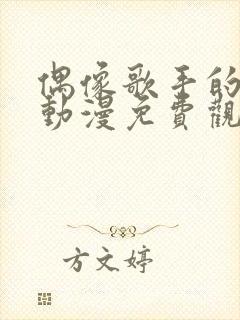 偶像歌手的
動漫免費觀
方文婷